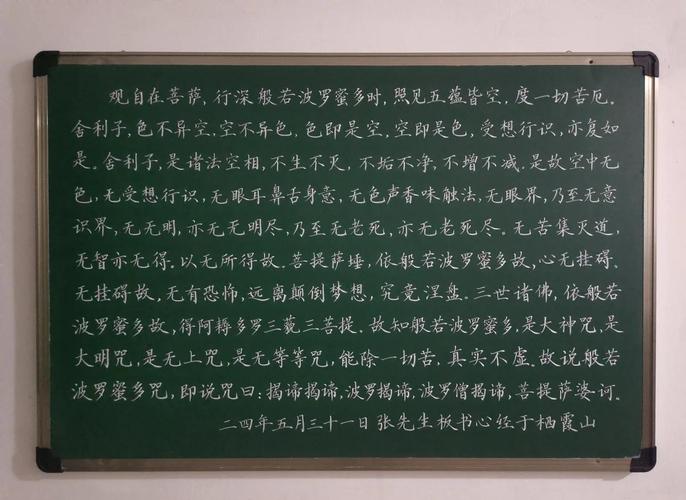 观自在菩萨,行深般若波罗蜜多时,照见五蕴皆空,度一切苦厄。
舍利子,色不异空,空不异色,色即是空,空即是色,受想行识,亦复如
是。舍利子,是诸法空相,不生不灭,不垢不净,不增不减。是故空中无
色,无受想行识,无眼耳鼻舌身意,无色声香味触法,无眼界,乃至无意
识界,无无明,亦无无明尽,乃至无老死,亦无老死尽。无苦集灭道,
无智亦无得。以无所得故。菩提萨埵,依般若波罗蜜多故,心无挂碍。
无挂碍故,无有恐怖,远离颠倒梦想,究竟涅盘。三世诸佛,依般若
波罗蜜多故,得阿耨多罗三藐三菩提。故知般若波罗蜜多,是大神咒,是
大明咒,是无上咒,是无等等咒,能除一切苦,真实不虚。故说般若
波罗蜜多咒,即说咒曰:揭谛揭谛,波罗揭谛,波罗僧揭谛,菩提萨婆诃。
二四年五月三十一日张先生板书心经于栖霞山